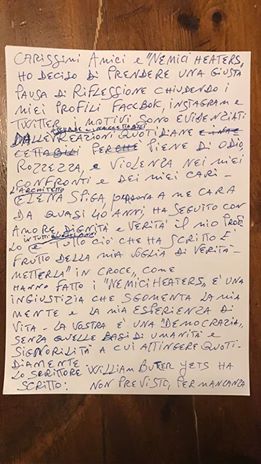 CARISSIMI AMICI E "NEMICI HEATERS,
HO DECISO DI PRENDERE UNA GIUSTA
PAUSA DI RIFLESSIONE CHIUDENDO I
MIEI PROFILI FACEBOK, INSTAGRAM E
TWITTER, I MOTIVI SONO EVIDENZIATI
DALLE REAZIONI QUOTIDIANE
PERCHÉ PIENE DI ODIO,
ROZZEZZA, E VIOLENZA NEI MIEI
CONFRONTI E DEI MIEI CARI-
L'ARCHITETTO
ELENA SPIGA, PERSONA A ME CARA
DA QUASI 40 ANNI HA SEGUITO CON
AMORE, DIGNITÀ E VERITÀ IL MIO PROFI
LO E TUTTO CIÒ CHE HA SCRITTO È
FRUTTO DELLA MIA VOGLIA DI VERITÀ-
METTERLA" IN CROCE, COME
HANNO FATTO I "NEMICI HEATERS, È UNA
INGIUSTIZIA CHE SGOMENTA LA MIA
MENTE E LA MIA ESPERIENZA DI
VITA- LA VOSTRA È UNA "DEMOCRAZIA,
SENZA QUELLE BASI DI UMANITÀ E
SIGNORILITÀ A CUI ATTINGERE QUOTI-
DIAMENTE
LO SCRITTORE WILLIAM BUTER YETS HA
SCRITTO: NON PREVISTO, PER MANCANZA